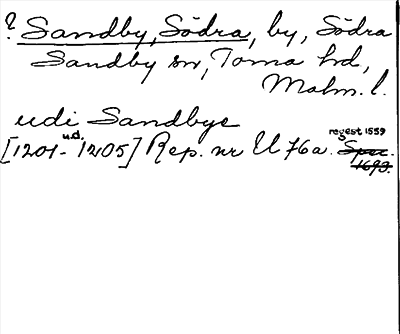 ? Sandby, Södra, by, Södra
Sandby sn, Torna hd,
Malm. l.
udi Sandbye
[1201-u.d. 1205] Rep. nr U 76a. regest 1559 Spec. 1693.